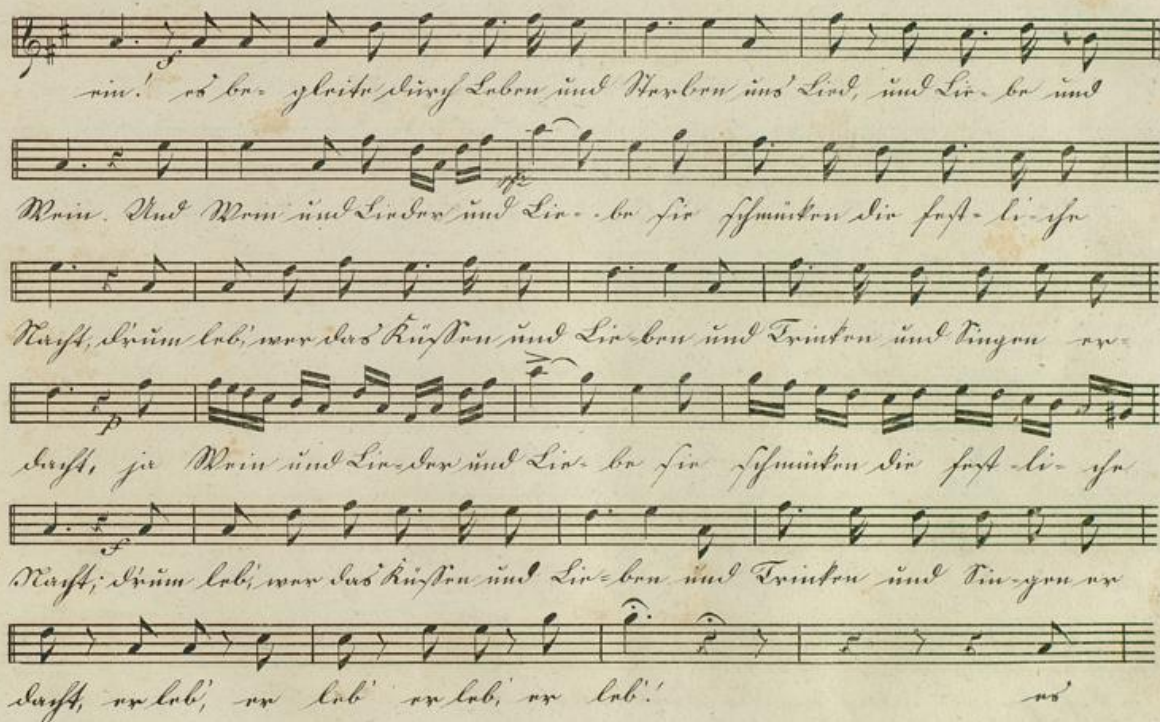 ein! es be- gleite durch Leben und Sterben uns Lied, und Lie- be und
Wein. Und Wein und Lieder und Lie- be sie schmücken die fest- li- che
Nacht, drum leb', wer das Küssen und Lie-ben und Trinken und Singen er-
dacht, ja Wein und Lie-der und Lie- be sie schmücken die fest-li- che
Nacht; drum leb', wer das Küssen und Lie-ben und Trinken und Sin-gen er
dacht, er leb', er leb' er leb', er leb'! es